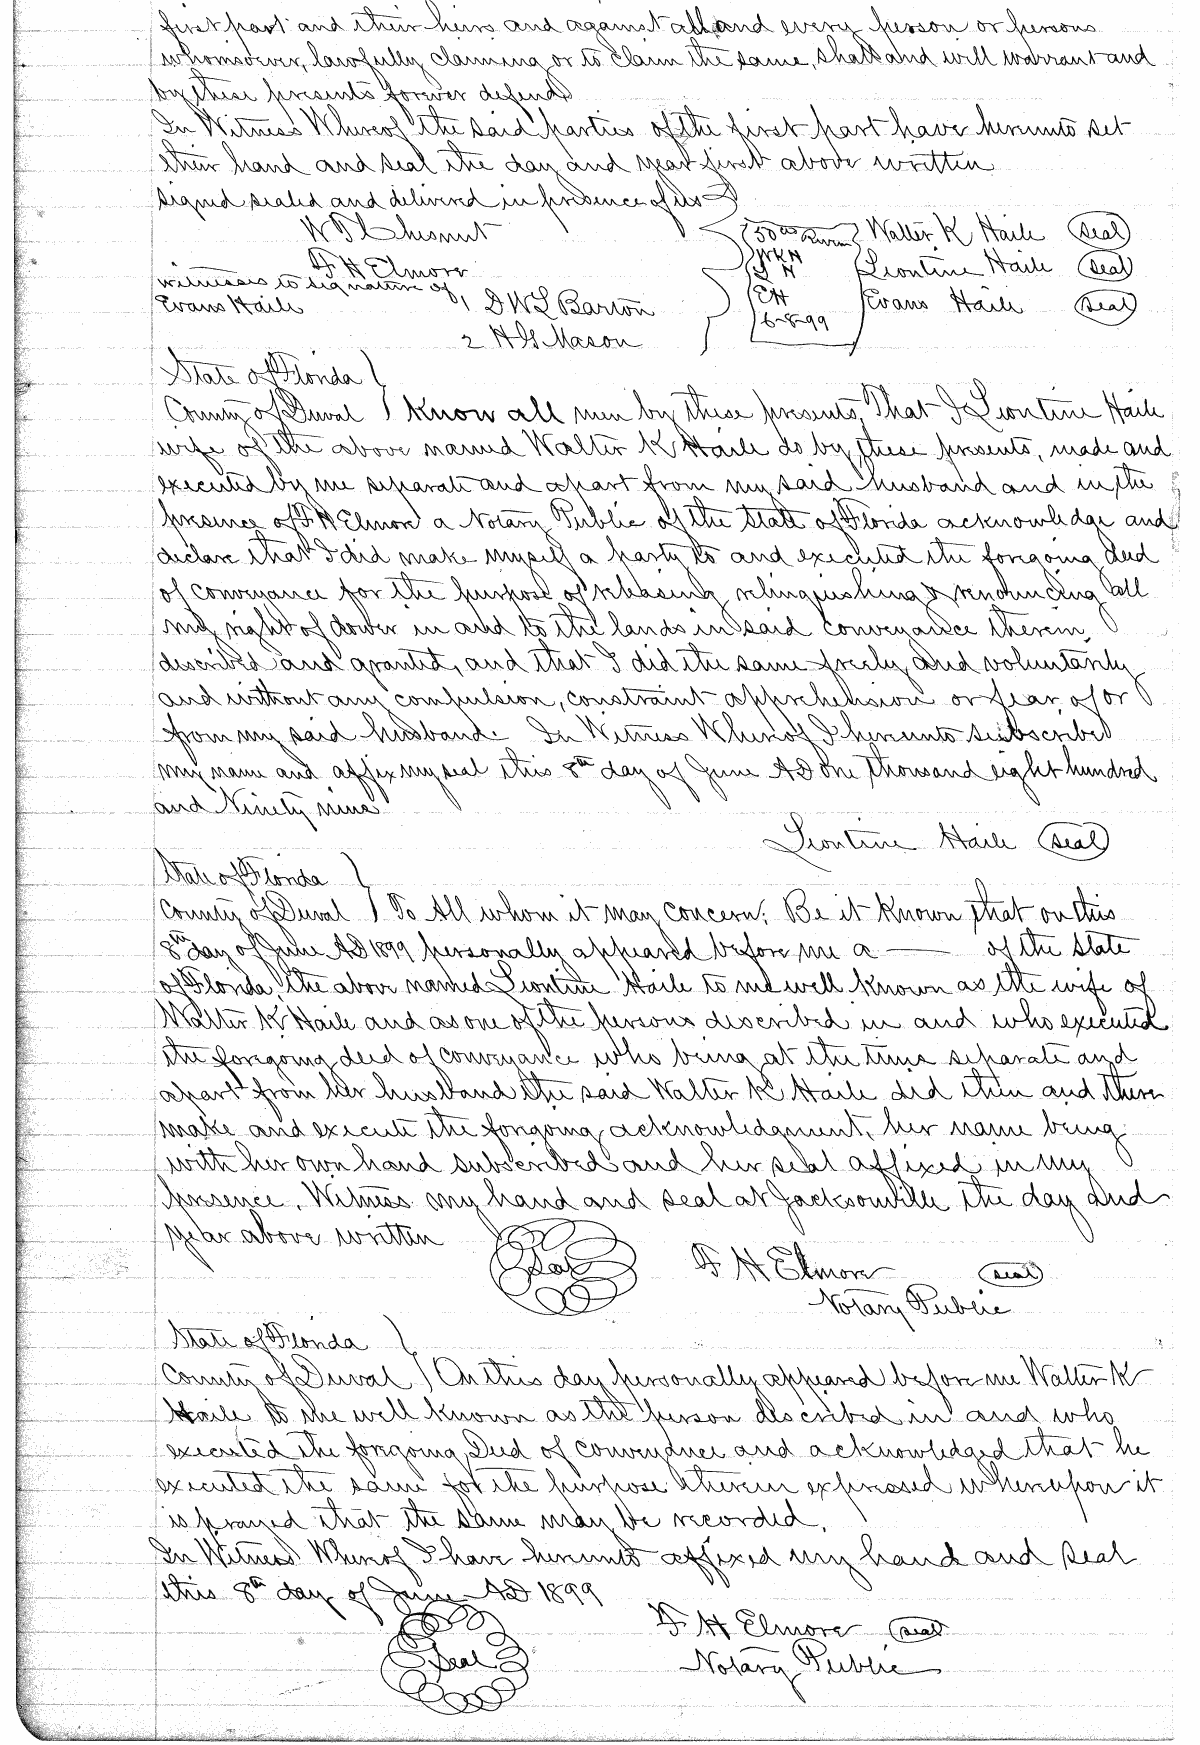 first part and their heirs and against all and every person or persons
whomsoever, lawfully claiming or to claim the same, shall and will warrant and
by these presents forever defend
In Witness Whereof the said parties of the first part have hereunto set
their hand and seal the day and year first above written
signed sealed and delivered in presence of us
W D Chesnut
F H Elmore
witnesses to signature of
Evans Haile
1 D W L Barton
2 H G Mason
50
W K H
L H
E H
6-8-99
Walter K Haile (seal)
Leontine Haile (seal)
Evans Haile (seal)
State of Florida
County of Duval Know all men by these presents, That I Leontine Haile
wife of the above named Walter K Haile do by these presents, made and
executed by me separate and apart from my said husband and in the
presence of F H Elmore a Notary Public of the State of Florida acknowledge and
declare that I did make myself a party to and executed the foregoing deed
of conveyance for the purpose of releasing relinquishing & renouncing all
my right of dower in and to the lands in said conveyance therein
described and granted, and that I did the same freely and voluntarily
and without any compulsion, constraint apprehension or fear of or
from my said husband. In Witness Whereof I hereunto subscribed
my name and affix my seal this 8th day of June AD one thousand eight hundred
and Ninety nine
Leontine Haile (seal)
State of Florida
County of Duval To All whom it may concern: Be it Known that on this
8th day of June AD 1899 personally appeared before me a —— of the State
of Florida, the above named Leontine Haile to me well known as the wife of
Walter K Haile and as one of the persons described in and who executed
the foregoing deed of conveyance who being at the time separate and
apart from her husband the said Walter K Haile did then and there
make and execute the foregoing acknowledgment, her name being
with her own hand subscribed and her seal affixed in my
presence. Witness my hand and seal at Jacksonville the day and
year above written
Seal
F H Elmore (seal)
Notary Public
State of Florida
County of Duval On this day personally appeared before me Walter K
Haile to me well known as the person described in and who
executed the foregoing Deed of conveyance and acknowledged that he
executed the same for the purpose therein expressed whereupon it
is prayed that the same may be recorded.
In Witness Whereof I have hereunto affixed my hand and seal
this 8th day of June AD 1899
Seal
F H Elmore (seal)
Notary Public